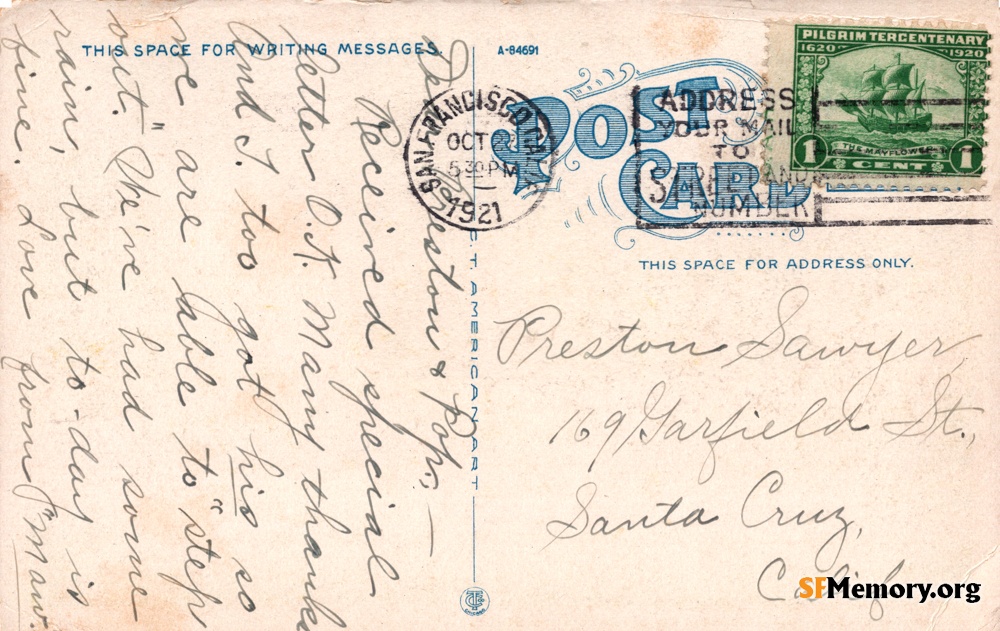 THIS SPACE FOR WRITING MESSAGES.
A-84691
POST CARD
SAN FRANCISCO
OCT
5 30 PM
1921
ADDRESS
YOUR MAIL
TO
STREET AND
NUMBER
PILGRIM TERCENTENARY
1620 1920
THE MAYFLOWER
1 CENT 1
THIS SPACE FOR ADDRESS ONLY.
C.T. AMERICAN ART
Dear Preston & Pop:—
Received special
letter O.K. Many thanks
And I too got his so
we are able to "step
out." We've had some
rain, but to-day is
fine. Love from "Maw."
Preston Sawyer,
169 Garfield St.,
Santa Cruz,
Calif
CHICAGO
SFMemory.org